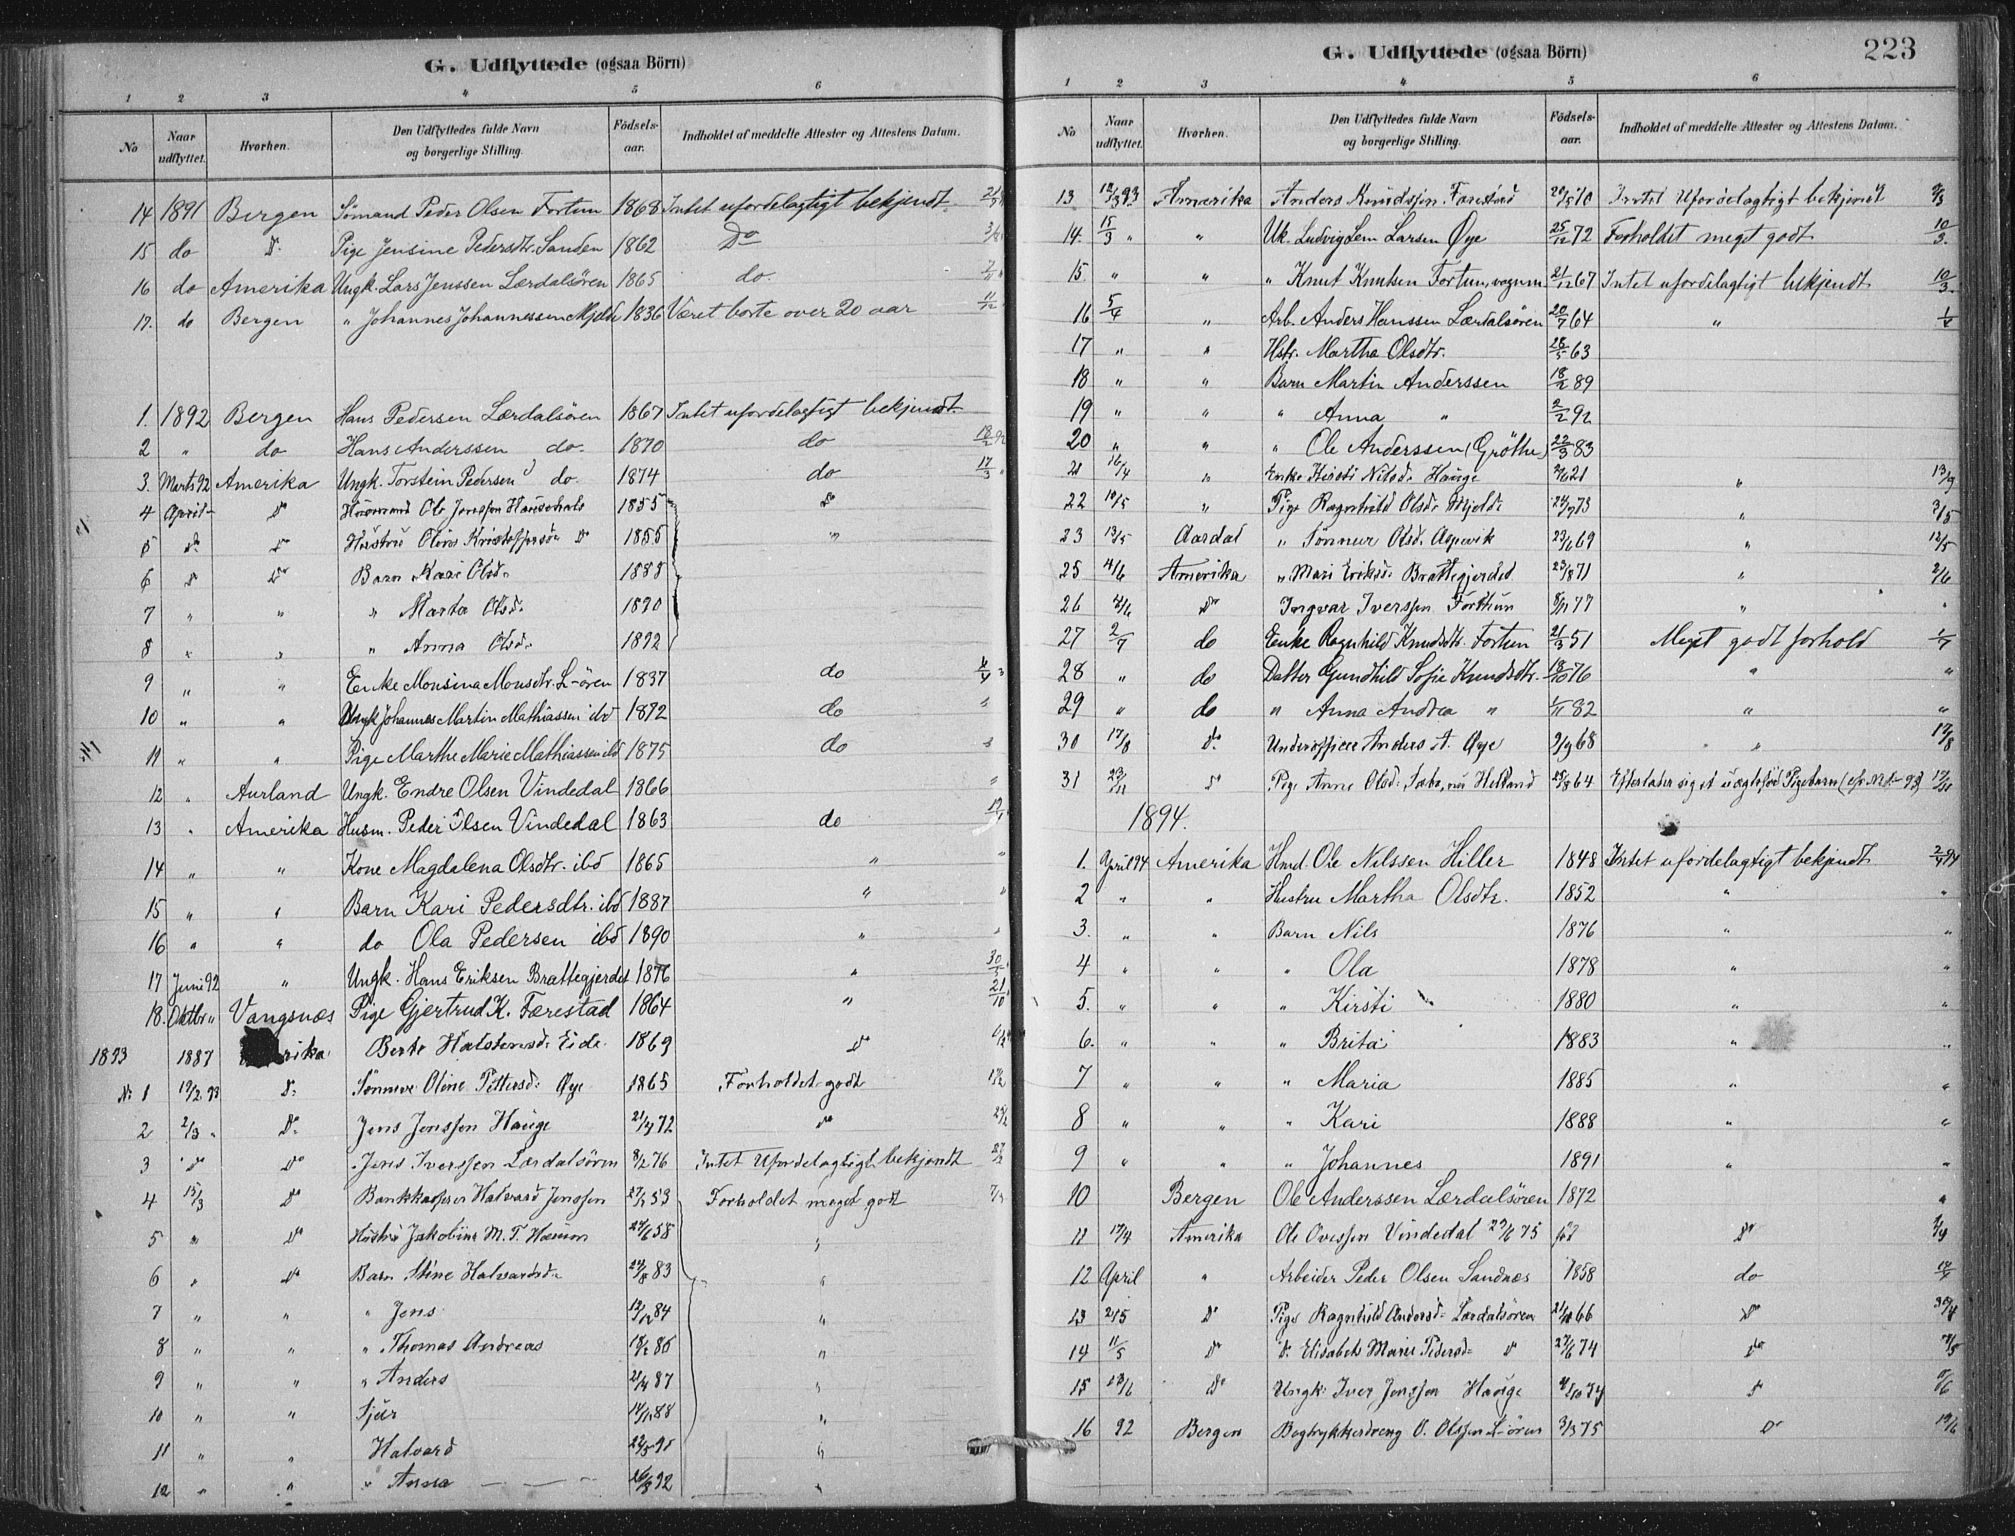 G. Udflyttede (ogsaa Börn)
1 2 3 4 5 6
No Naar udflyttet. Hvorhen. Den Udflyttedes fulde Navn og borgerlige Stilling. Födsels-aar. Indholdet af meddelte Attester og Attestens Datum.
14 1891 Bergen Sömand Peder Olsen Fortun 1868 Intet ufordelagtigt bekjendt
15 do Do Pige Jensine Pedersdtr. Sanden 1862 Do
16 do Amerika Ungk. Lars Jenssen Lærdalsören 1865 do.
17. do Bergen " Johannes Johannessen Mjelde 1836 Været borte over 20 aar 11/12
1. 1892 Bergen Hans Pedersen Lærdalsören 1867 Intet ufordelagtigt bekjendt
2 " do Hans Anderssen do. 1870 do 18/2 92
3. Marts 92 Amerika Ungk. Torstein Pedersen do. 1874 do 17/3 "
4 April Do Ole Jonssen 1855 Do
5 Do Do Hustru Olina Kristoffersdr Do 1855 "
6 Do Do Barn Kari Olsd. 1888
7 " " " Marta Olsd. 1890
8 " " " Anna Olsd. 1892
9 " " Enke Monsina Monsdtr. L-ören 1837 do
10 " " Ungk Johannes Martin Mathiassen ibd 1872 do "
11 " " Pige Marthe Marie Mathiassen ibd 1875 do
12 " Aurland Ungk. Endre Olsen Vindedal 1866 "
13 " Amerika Husm. Peder Olsen Vindedal 1863 do
14 " " Kone Magdalena Olsdtr. ibd 1865 " "
15 " " Barn Kari Pedersdtr. ibd 1887 " "
16 " " do Ola Pedersen ibd 1890 " "
17 Juni 92 " Ungk. Hans Eriksen Brattegjerdet 1876 " 30/5
18. Oktbr " Vangsnæs Pige Gjertrud K. Færestad 1864 " 21/10
1893 1887 rika Berte Halstensd. Eide 1869 Do
No 1 19/2 93 Do Sönneve Oline Pettersd. Øye 1865 Forholdet godt
2 2/3 " Do Jens Jonssen Hauge 72 Do
3 " Do Do Jens Iverssen Lærdalsören 8/2 76 Intet Ufordelagtigt bekjendt 27/2
4 15/3 Do Halvard Jenssen 53 Forholdet meget godt
5 " Do Hustru Jakobine M. T. 58 "
6 " Do Barn Stine Halvardsd. 83 "
7 " " " Jens 84 "
8 " " " Thomas Andreas "
9 " " " Anders 87 "
10 " " Sjur 88 "
11 " " Halvard "
12 " " " Anna 92 "
G. Udflyttede (ogsaa Börn) 223
1 2 3 4 5 6
No Naar udflyttet. Hvorhen. Den Udflyttedes fulde Navn og borgerlige Stilling. Födsels-aar. Indholdet af meddelte Attester og Attestens Datum.
13 12/3 93 Amerika Anders Knudssen Færestad 70 Intet Ufordelagtigt bekjendt
14. 15/3 " " Uk. Ludvig Lem Larsen Øye 25/12 72 Forholdet meget godt 10/3.
15. " " " Knut Knutsen Fortun, 21/12 67 Intet ufordelagtigt bekjendt 10/3.
16 5/4 " Arb. Anders Hanssen Lærdalsören 20/7 64 " 1/4
17 " " Hstr. Martha Olsdtr. 28/5 63
18 " " Barn Martin Anderssen 18/2 89
19 " " " Anna " 2/2 92
20 " " " Ole Anderssen (Gröthe) 22/3 83
21 16/4 " Enke Kirsti Nilsd. Hauge 21 "
22 10/5 " Pige Ragnhild Olsd. Mjelde 73 " 3/5
23 13/5 Aardal " Sönneve Olsd. Aspevik 69 " 12/5
25 Amerika " Mari Eriksd. Brattegjerdet 23/8 71 " 2/6
26 Do Ingvar Iverssen Forthun 77 " "
27 2/7 do Enke Ragnhild Knudsdtr. Fortun 21/3 51 Meget godt forhold 1/7
28 " do Datter Gundhild Sofie Knudsdtr. 18/10 76 " "
29 " do " Anna Andrea " 1/11 82 " "
30 17/8 Do Underofficer Anders A. Øye 9/9 68 " 17/8
31 23/11 Do Pige Anne Olsd. Sæbø, nu Hetland 25/8 64 Efterlader sig et uægtefød Pigebarn
1894.
1. April 94 Amerika Hmd. Ole Nilssen Hiller 1848 Intet ufordelagtigt bekjendt 2/4 94
2 " " Hustru Martha Olsdtr. 1852 " "
3. " " Barn Nils 1876 " "
4 " " " Ola 1878 " "
5. " " " Kirsti 1880 " "
6. " " " Brita 1883 " "
7 " " " Maria 1885 " "
8 " " " Kari 1888 " "
9 " " " Johannes 1891 " "
10 Bergen Ole Anderssen Lærdalsören 1872 "
11 17/4 Amerika Ole Ovessen Vindedal 29/6 75 Do
12 April " Arbeider Peder Olsen Sandnæs 1858 do
13 2/5 Do Pige Ragnhild Andersd. Lærdalsören 66 Do 30/4
14 11/5 Do Do Elisabet Marie Pedersd. Do 27/6 74 Do
15 Do Ungk. Iver Jonssen Hauge Do
16 92 Bergen Bogtrykkerdreng O. Olssen L-ören 3/3 75 Do